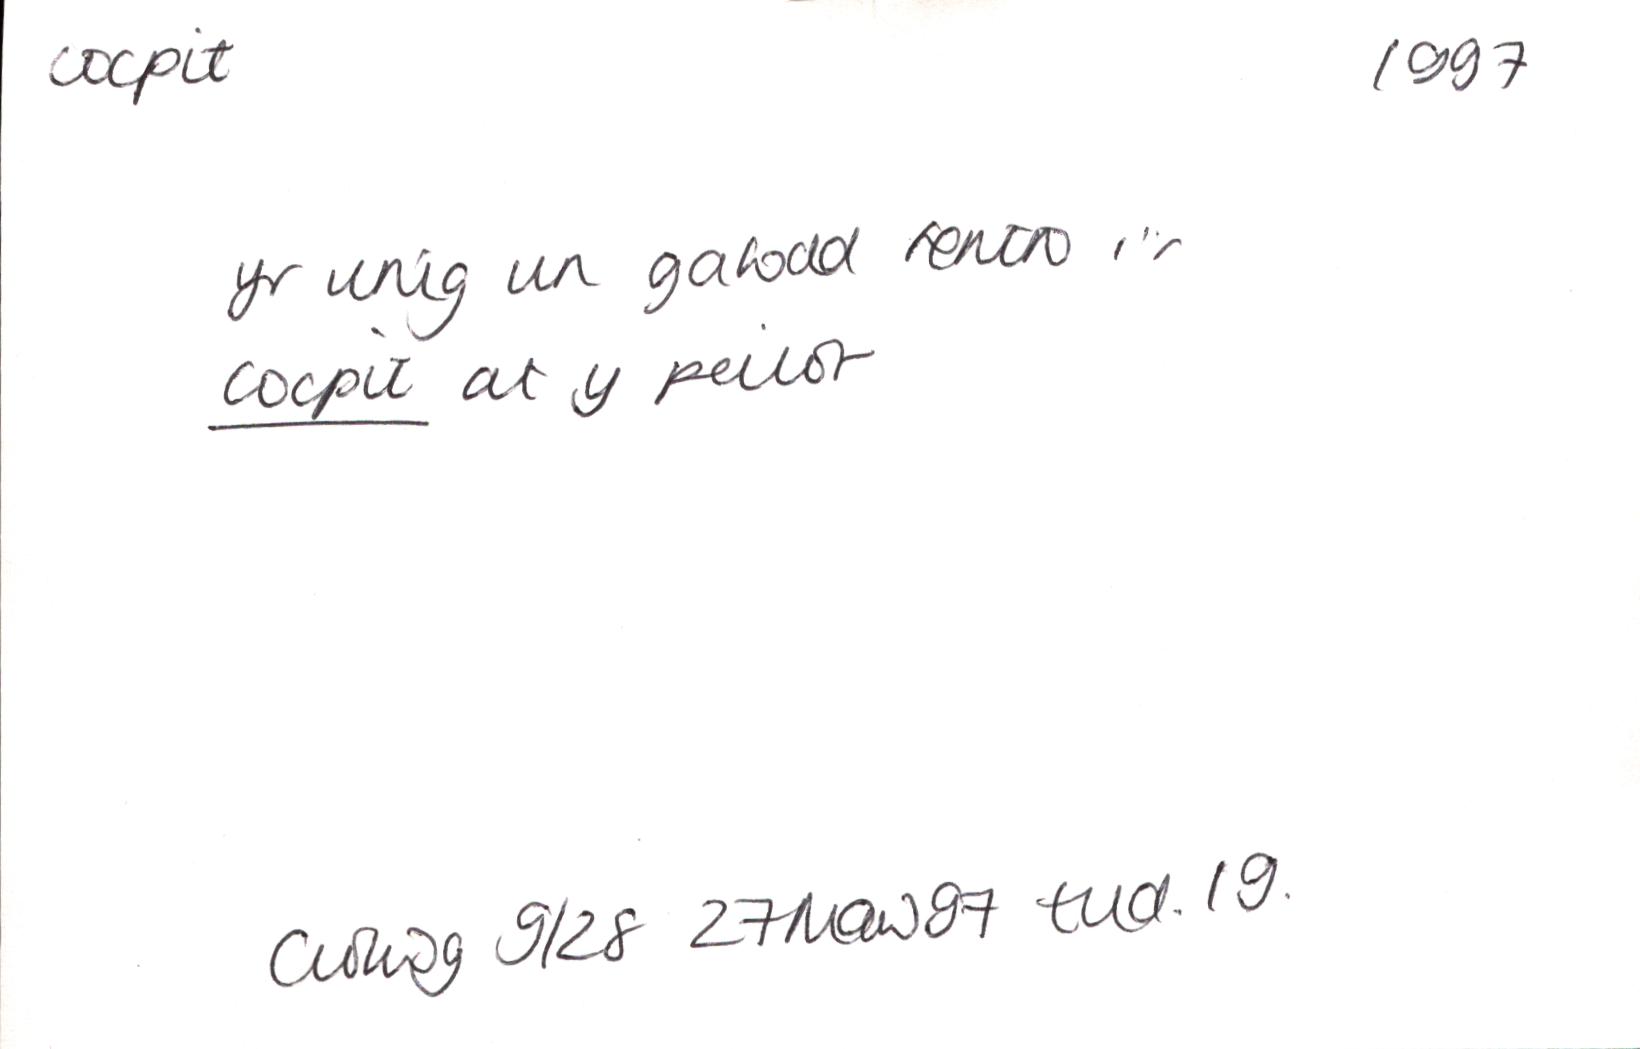 cocpit 1997
yr unig un gafodd fentro i'r
cocpit at y peilot
Golwg 9/28 27Maw97 tud. 19.